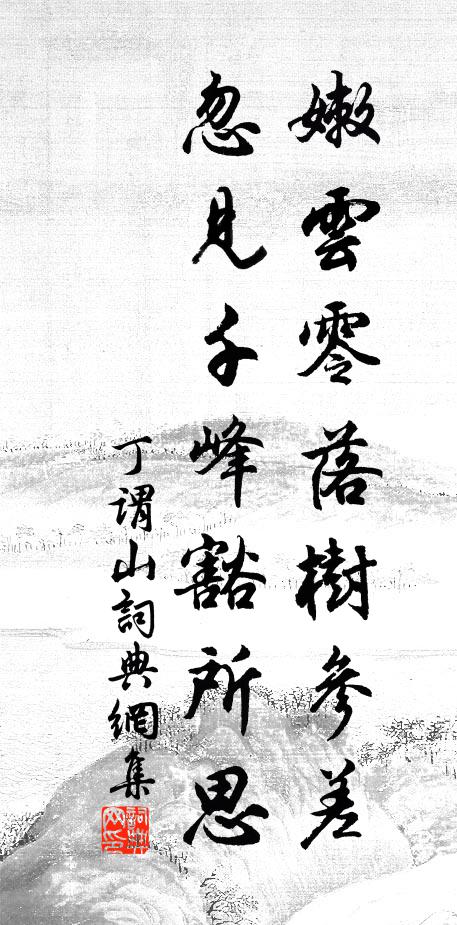 嫩雲零落樹參差
忽見千峰豁所思
丁謂山詞典網集
詞典網印